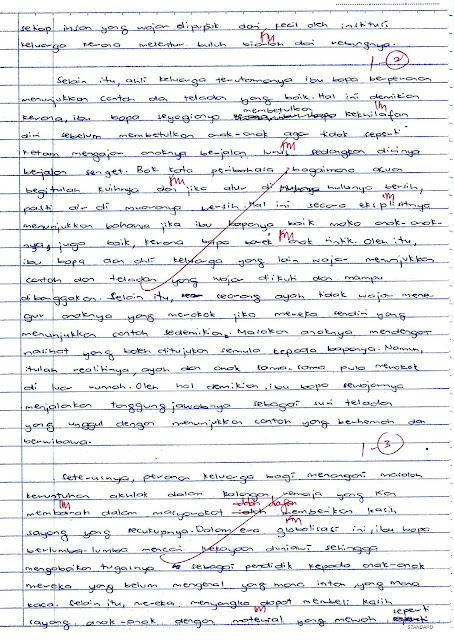 setiap insan yang wajar dipupuk dari kecil oleh institusi
keluarga kerana melentur buluh biarlah dari rebungnya.
1-2
Selain itu, ahli keluarga terutamanya ibu bapa berperanan
menunjukkan contoh dan teladan yang baik. Hal ini demikian
kerana, ibu bapa seyogianya membetulkan kekhilafan
diri sebelum membetulkan anak-anak agar tidak seperti
ketam mengajar anaknya berjalan lurus sedangkan dirinya
berjalan senget. Bak kata peribahasa, bagaimana acuan
begitulah kuihnya dan jika alur di hulunya bersih,
pasti air di muaranya bersih. Hal ini secara eksplisitnya
menunjukkan bahawa jika ibu bapanya baik maka anak-anak-
nya, juga baik, kerana bapa borek anak rintik. Oleh itu,
ibu bapa dan ahli keluarga yang lain wajar menunjukkan
contoh dan teladan yang wajar diikuti dan mampu
dibanggakan. Selain itu, seorang ayah tidak wajar mene-
gur anaknya yang merokok jika mereka sendiri yang
menunjukkan contoh sedemikian. Masakan anaknya mendengar
nasihat yang boleh ditujukan semula kepada bapanya. Namun,
itulah realitinya, ayah dan anak sama-sama pula merokok
di luar rumah. Oleh hal demikian, ibu bapa sewajarnya
menjalankan tanggungjawabnya sebagai suri teladan
yang unggul dengan menunjukkan contoh yang berhemah dan
berwibawa.
1-3
Seterusnya, peranan keluarga bagi menangani masalah
keruntuhan akhlak dalam kalangan remaja yang kian
membarah dalam masyarakat ialah memberikan kasih
sayang yang secukupnya. Dalam era globalisasi ini, ibu bapa
berlumba-lumba mencari kekayaan duniawi sehingga
mengabaikan tugasnya sebagai pendidik kepada anak-anak
mereka yang belum mengenal yang mana intan, yang mana
kaca. Selain itu, mereka menyangka dapat membeli kasih
sayang anak-anak dengan material yang mewah seperti
STANDARD